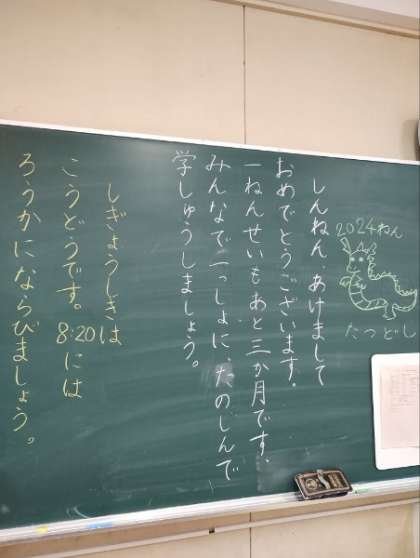 2024ねん
たつどし
しんねん、あけまして
おめでとうございます。
一ねんせいもあと三か月です。
みんなでいっしょに、たのしんで
学しゅうしましょう。
しぎょうしきは
こうどうです。8:20には
ろうかにならびましょう。